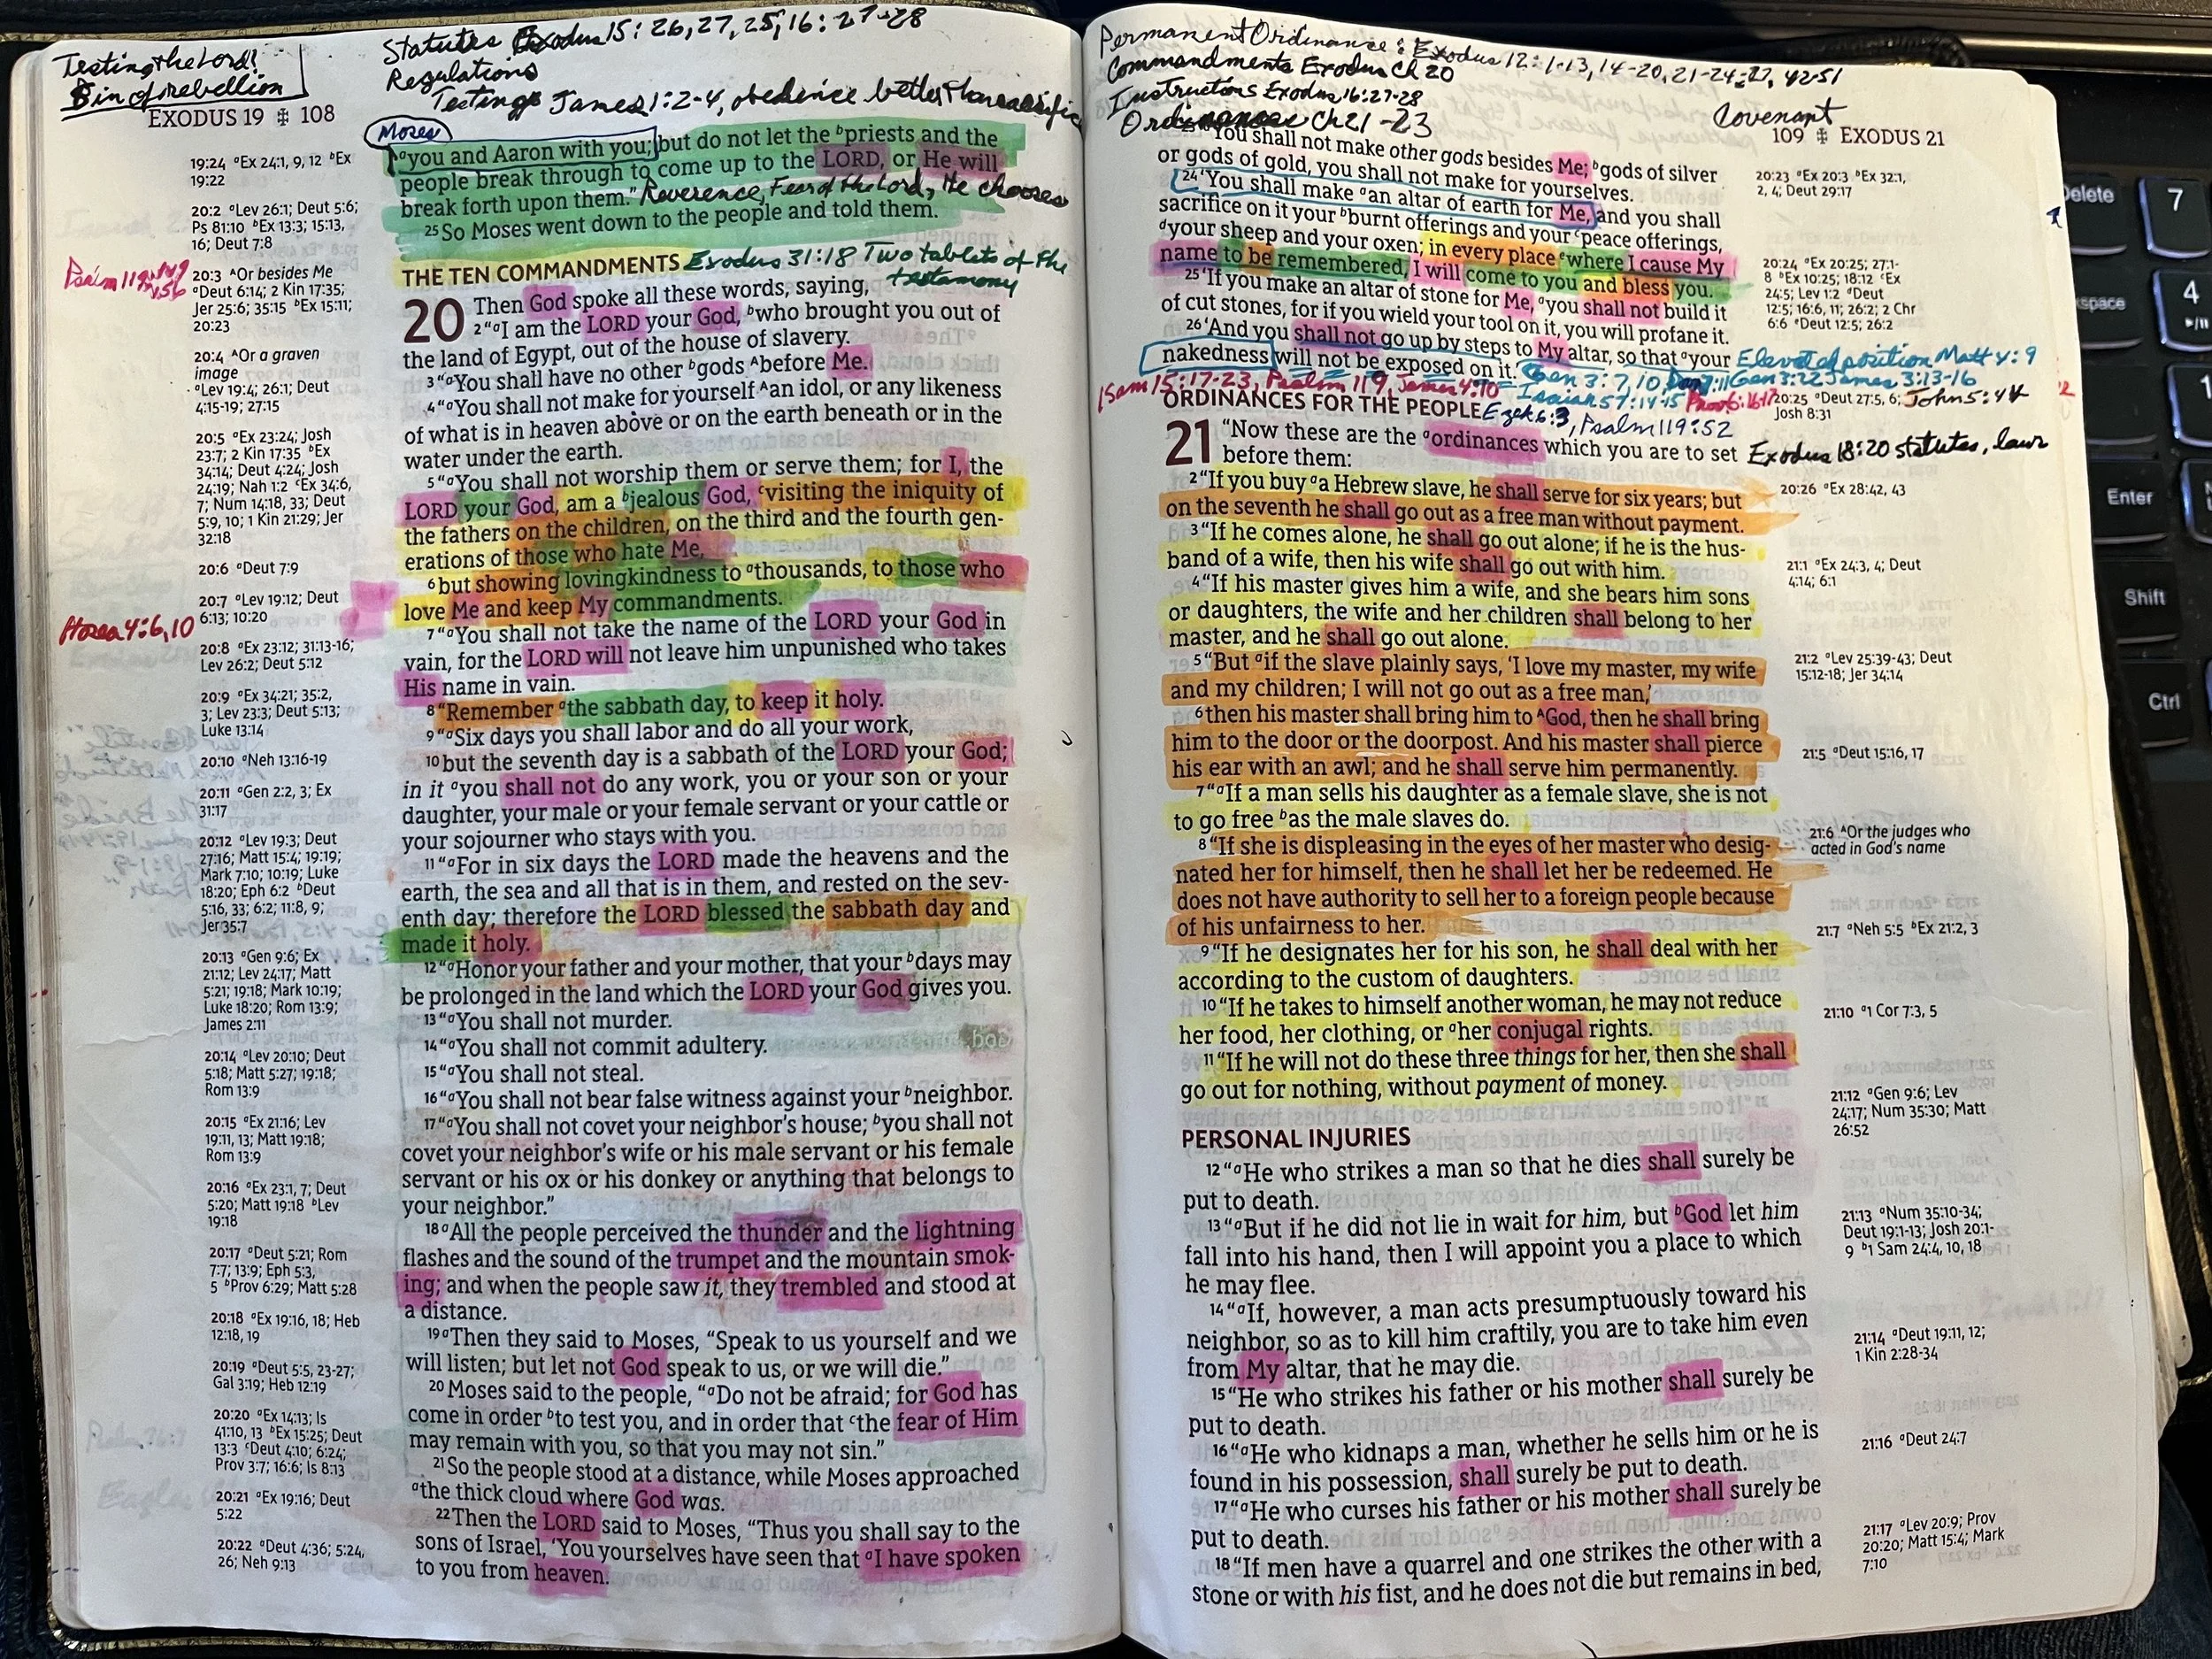 Testing the Lord!
Sin of rebellion
Statutes Exodus 15:26,27,25, 16:27-28
Regulations
Testing James 1:2-4, obedience better than sacrifice
EXODUS 19 ✠ 108
Moses
ᵃyou and Aaron with you; but do not let the ᵇpriests and the
people break through to come up to the LORD, or He will
break forth upon them.” Reverence, Fear of the Lord, He chooses
25 So Moses went down to the people and told them.
THE TEN COMMANDMENTS Exodus 31:18 Two tablets of the
testamony
20 Then God spoke all these words, saying,
2 “ᵃI am the LORD your God, ᵇwho brought you out of
the land of Egypt, out of the house of slavery.
3 “ᵃYou shall have no other ᵇgods ᴬbefore Me.
4 “ᵃYou shall not make for yourself ᴬan idol, or any likeness
of what is in heaven above or on the earth beneath or in the
water under the earth.
5 “ᵃYou shall not worship them or serve them; for I, the
LORD your God, am a ᵇjealous God, ᶜvisiting the iniquity of
the fathers on the children, on the third and the fourth gen-
erations of those who hate Me,
6 but showing lovingkindness to ᵃthousands, to those who
love Me and keep My commandments.
7 “ᵃYou shall not take the name of the LORD your God in
vain, for the LORD will not leave him unpunished who takes
His name in vain.
8 “Remember ᵃthe sabbath day, to keep it holy.
9 “ᵃSix days you shall labor and do all your work,
10 but the seventh day is a sabbath of the LORD your God;
in it ᵃyou shall not do any work, you or your son or your
daughter, your male or your female servant or your cattle or
your sojourner who stays with you.
11 “ᵃFor in six days the LORD made the heavens and the
earth, the sea and all that is in them, and rested on the sev-
enth day; therefore the LORD blessed the sabbath day and
made it holy.
12 “ᵃHonor your father and your mother, that your ᵇdays may
be prolonged in the land which the LORD your God gives you.
13 “ᵃYou shall not murder.
14 “ᵃYou shall not commit adultery.
15 “ᵃYou shall not steal.
16 “ᵃYou shall not bear false witness against your ᵇneighbor.
17 “ᵃYou shall not covet your neighbor’s house; ᵇyou shall not
covet your neighbor’s wife or his male servant or his female
servant or his ox or his donkey or anything that belongs to
your neighbor.”
18 ᵃAll the people perceived the thunder and the lightning
flashes and the sound of the trumpet and the mountain smok-
ing; and when the people saw it, they trembled and stood at
a distance.
19 ᵃThen they said to Moses, “Speak to us yourself and we
will listen; but let not God speak to us, or we will die.”
20 Moses said to the people, “ᵃDo not be afraid; for God has
come in order ᵇto test you, and in order that ᶜthe fear of Him
may remain with you, so that you may not sin.”
21 So the people stood at a distance, while Moses approached
ᵃthe thick cloud where God was.
22 Then the LORD said to Moses, “Thus you shall say to the
sons of Israel, ‘You yourselves have seen that ᵃI have spoken
to you from heaven.
19:24 ᵃEx 24:1, 9, 12 ᵇEx
19:22
20:2 ᵃLev 26:1; Deut 5:6;
Ps 81:10 ᵇEx 13:3; 15:13,
16; Deut 7:8
Psalm 119
20:3 ᴬOr besides Me
ᵃDeut 6:14; 2 Kin 17:35;
Jer 25:6; 35:15 ᵇEx 15:11;
20:23
20:4 ᴬOr a graven
image
ᵃLev 19:4; 26:1; Deut
4:15-19; 27:15
20:5 ᵃEx 23:24; Josh
23:7; 2 Kin 17:35 ᵇEx
34:14; Deut 4:24; Josh
24:19; Nah 1:2 ᶜEx 34:6,
7; Num 14:18, 33; Deut
5:9, 10; 1 Kin 21:29; Jer
32:18
20:6 ᵃDeut 7:9
20:7 ᵃLev 19:12; Deut
6:13; 10:20
Hosea 4:6,10
20:8 ᵃEx 23:12; 31:13-16;
Lev 26:2; Deut 5:12
20:9 ᵃEx 34:21; 35:2,
3; Lev 23:3; Deut 5:13;
Luke 13:14
20:10 ᵃNeh 13:16-19
20:11 ᵃGen 2:2, 3; Ex
31:17
20:12 ᵃLev 19:3; Deut
27:16; Matt 15:4; 19:19;
Mark 7:10; 10:19; Luke
18:20; Eph 6:2 ᵇDeut
5:16, 33; 6:2; 11:8, 9;
Jer 35:7
20:13 ᵃGen 9:6; Ex
21:12; Lev 24:17; Matt
5:21; 19:18; Mark 10:19;
Luke 18:20; Rom 13:9;
James 2:11
20:14 ᵃLev 20:10; Deut
5:18; Matt 5:27; 19:18;
Rom 13:9
20:15 ᵃEx 21:16; Lev
19:11, 13; Matt 19:18;
Rom 13:9
20:16 ᵃEx 23:1, 7; Deut
5:20; Matt 19:18 ᵇLev
19:18
20:17 ᵃDeut 5:21; Rom
7:7; 13:9; Eph 5:3,
5 ᵇProv 6:29; Matt 5:28
20:18 ᵃEx 19:16, 18; Heb
12:18, 19
20:19 ᵃDeut 5:5, 23-27;
Gal 3:19; Heb 12:19
20:20 ᵃEx 14:13; Is
41:10, 13 ᵇEx 15:25; Deut
13:3 ᶜDeut 4:10; 6:24;
Prov 3:7; 16:6; Is 8:13
20:21 ᵃEx 19:16; Deut
5:22
20:22 ᵃDeut 4:36; 5:24,
26; Neh 9:13
Permanent Ordinance: Exodus 12:1-13, 14-20, 21-24-27, 42-51
Commandments Exodus Ch 20
Instructions Exodus 16:27-28
Ordinances Ch 21-23
Covenant
109 ✠ EXODUS 21
You shall not make other gods besides Me; ᵇgods of silver
or gods of gold, you shall not make for yourselves.
24 ‘You shall make ᵃan altar of earth for Me, and you shall
sacrifice on it your ᵇburnt offerings and your ᶜpeace offerings,
ᵈyour sheep and your oxen; in every place ᵉwhere I cause My
name to be remembered, I will come to you and bless you.
25 ‘If you make an altar of stone for Me, ᵃyou shall not build it
of cut stones, for if you wield your tool on it, you will profane it.
26 ‘And you shall not go up by steps to My altar, so that ᵃyour
nakedness will not be exposed on it.’ Gen 3:7,10
Elevated position Matt 4:9
Gen 3:22 James 3:13-16
1 Sam 15:17-23, Psalm 119, James 4:10
Isaiah 57:14-15
John 5:44
ORDINANCES FOR THE PEOPLE Ezek 6:3, Psalm 119:52
21 “Now these are the ᵃordinances which you are to set
before them:
Exodus 18:20 statutes, laws
2 “If you buy ᵃa Hebrew slave, he shall serve for six years; but
on the seventh he shall go out as a free man without payment.
3 “If he comes alone, he shall go out alone; if he is the hus-
band of a wife, then his wife shall go out with him.
4 “If his master gives him a wife, and she bears him sons
or daughters, the wife and her children shall belong to her
master, and he shall go out alone.
5 “But ᵃif the slave plainly says, ‘I love my master, my wife
and my children; I will not go out as a free man,’
6 then his master shall bring him to ᴬGod, then he shall bring
him to the door or the doorpost. And his master shall pierce
his ear with an awl; and he shall serve him permanently.
7 “ᵃIf a man sells his daughter as a female slave, she is not
to go free ᵇas the male slaves do.
8 “If she is displeasing in the eyes of her master who desig-
nated her for himself, then he shall let her be redeemed. He
does not have authority to sell her to a foreign people because
of his unfairness to her.
9 “If he designates her for his son, he shall deal with her
according to the custom of daughters.
10 “If he takes to himself another woman, he may not reduce
her food, her clothing, or ᵃher conjugal rights.
11 “If he will not do these three things for her, then she shall
go out for nothing, without payment of money.
PERSONAL INJURIES
12 “ᵃHe who strikes a man so that he dies shall surely be
put to death.
13 “ᵃBut if he did not lie in wait for him, but ᵇGod let him
fall into his hand, then I will appoint you a place to which
he may flee.
14 “ᵃIf, however, a man acts presumptuously toward his
neighbor, so as to kill him craftily, you are to take him even
from My altar, that he may die.
15 “He who strikes his father or his mother shall surely be
put to death.
16 “ᵃHe who kidnaps a man, whether he sells him or he is
found in his possession, shall surely be put to death.
17 “ᵃHe who curses his father or his mother shall surely be
put to death.
18 “If men have a quarrel and one strikes the other with a
stone or with his fist, and he does not die but remains in bed,
20:23 ᵃEx 20:3 ᵇEx 32:1,
2, 4; Deut 29:17
20:24 ᵃEx 20:25; 27:1-
8 ᵇEx 10:25; 18:12 ᶜEx
24:5; Lev 1:2 ᵈDeut
12:5; 16:6, 11; 26:2; 2 Chr
6:6 ᵉDeut 12:5; 26:2
20:25 ᵃDeut 27:5, 6;
Josh 8:31
20:26 ᵃEx 28:42, 43
21:1 ᵃEx 24:3, 4; Deut
4:14; 6:1
21:2 ᵃLev 25:39-43; Deut
15:12-18; Jer 34:14
21:5 ᵃDeut 15:16, 17
21:6 ᴬOr the judges who
acted in God’s name
21:7 ᵃNeh 5:5 ᵇEx 21:2, 3
21:10 ᵃ1 Cor 7:3, 5
21:12 ᵃGen 9:6; Lev
24:17; Num 35:30; Matt
26:52
21:13 ᵃNum 35:10-34;
Deut 19:1-13; Josh 20:1-
9 ᵇ1 Sam 24:4, 10, 18
21:14 ᵃDeut 19:11, 12;
1 Kin 2:28-34
21:16 ᵃDeut 24:7
21:17 ᵃLev 20:9; Prov
20:20; Matt 15:4; Mark
7:10
Delete
7
4
1
Enter
Shift
Ctrl